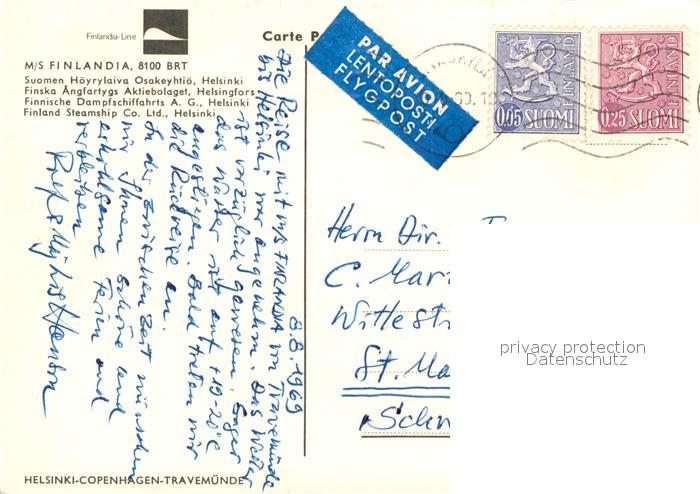 Finlandia-Line
Carte P
M/S FINLANDIA, 8100 BRT
Suomen Höyrylaiva Osakeyhtiö, Helsinki
Finska Ångfartygs Aktiebolaget, Helsingfors
Finnische Dampfschiffahrts A. G., Helsinki
Finland Steamship Co. Ltd., Helsinki
PAR AVION
LENTOPOSTI
FLYGPOST
0,65 SUOMI FINLAND
0,25 SUOMI FINLAND
8.8.1969
Die Reise mit m/s FINLANDIA von Travemünde
bis Helsinki war angenehm. Das Wetter
ist vorzüglich gewesen. Sogar
das Wasser ist auf +19-20°C
angestiegen. Bald treten wir
die Rückreise an.
In der zwischen Zeit wünschen
wir Ihnen schöne und
erholsame Ferien und
verbleiben
Herrn Dir.
C. Mar
Wittestr
St. Ma
Schw
privacy protection
Datenschutz
HELSINKI-COPENHAGEN-TRAVEMÜNDE